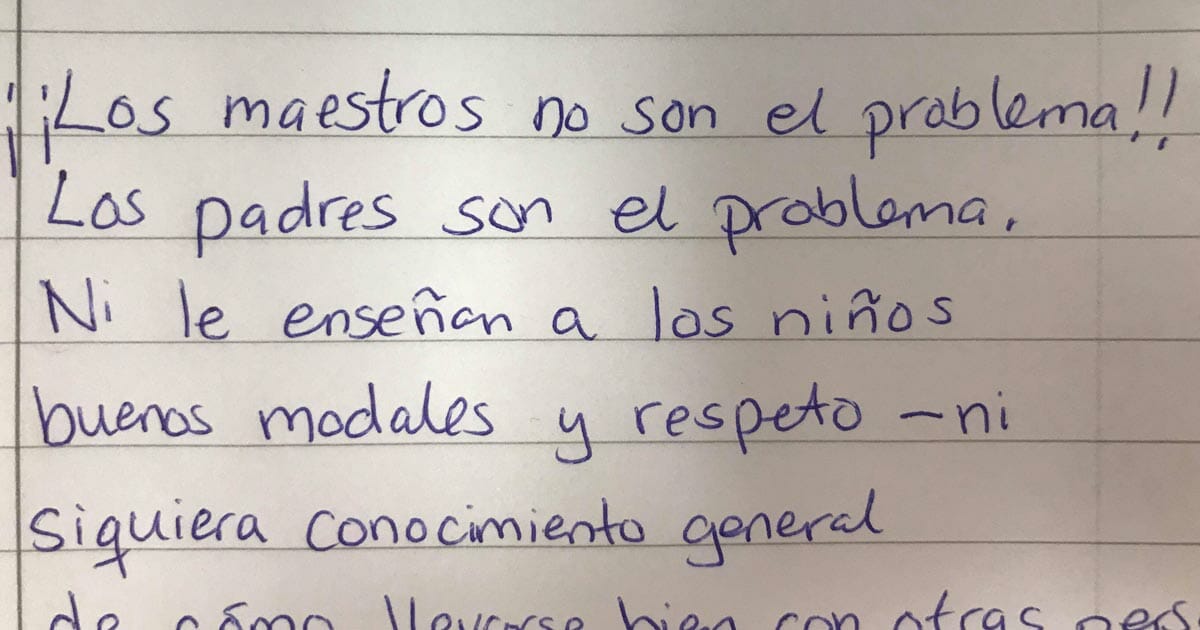 ¡¡Los maestros no son el problema!!
Los padres son el problema.
Ni le enseñan a los niños
buenos modales y respeto –ni
siquiera conocimiento general
de cómo llevarse bien con otras